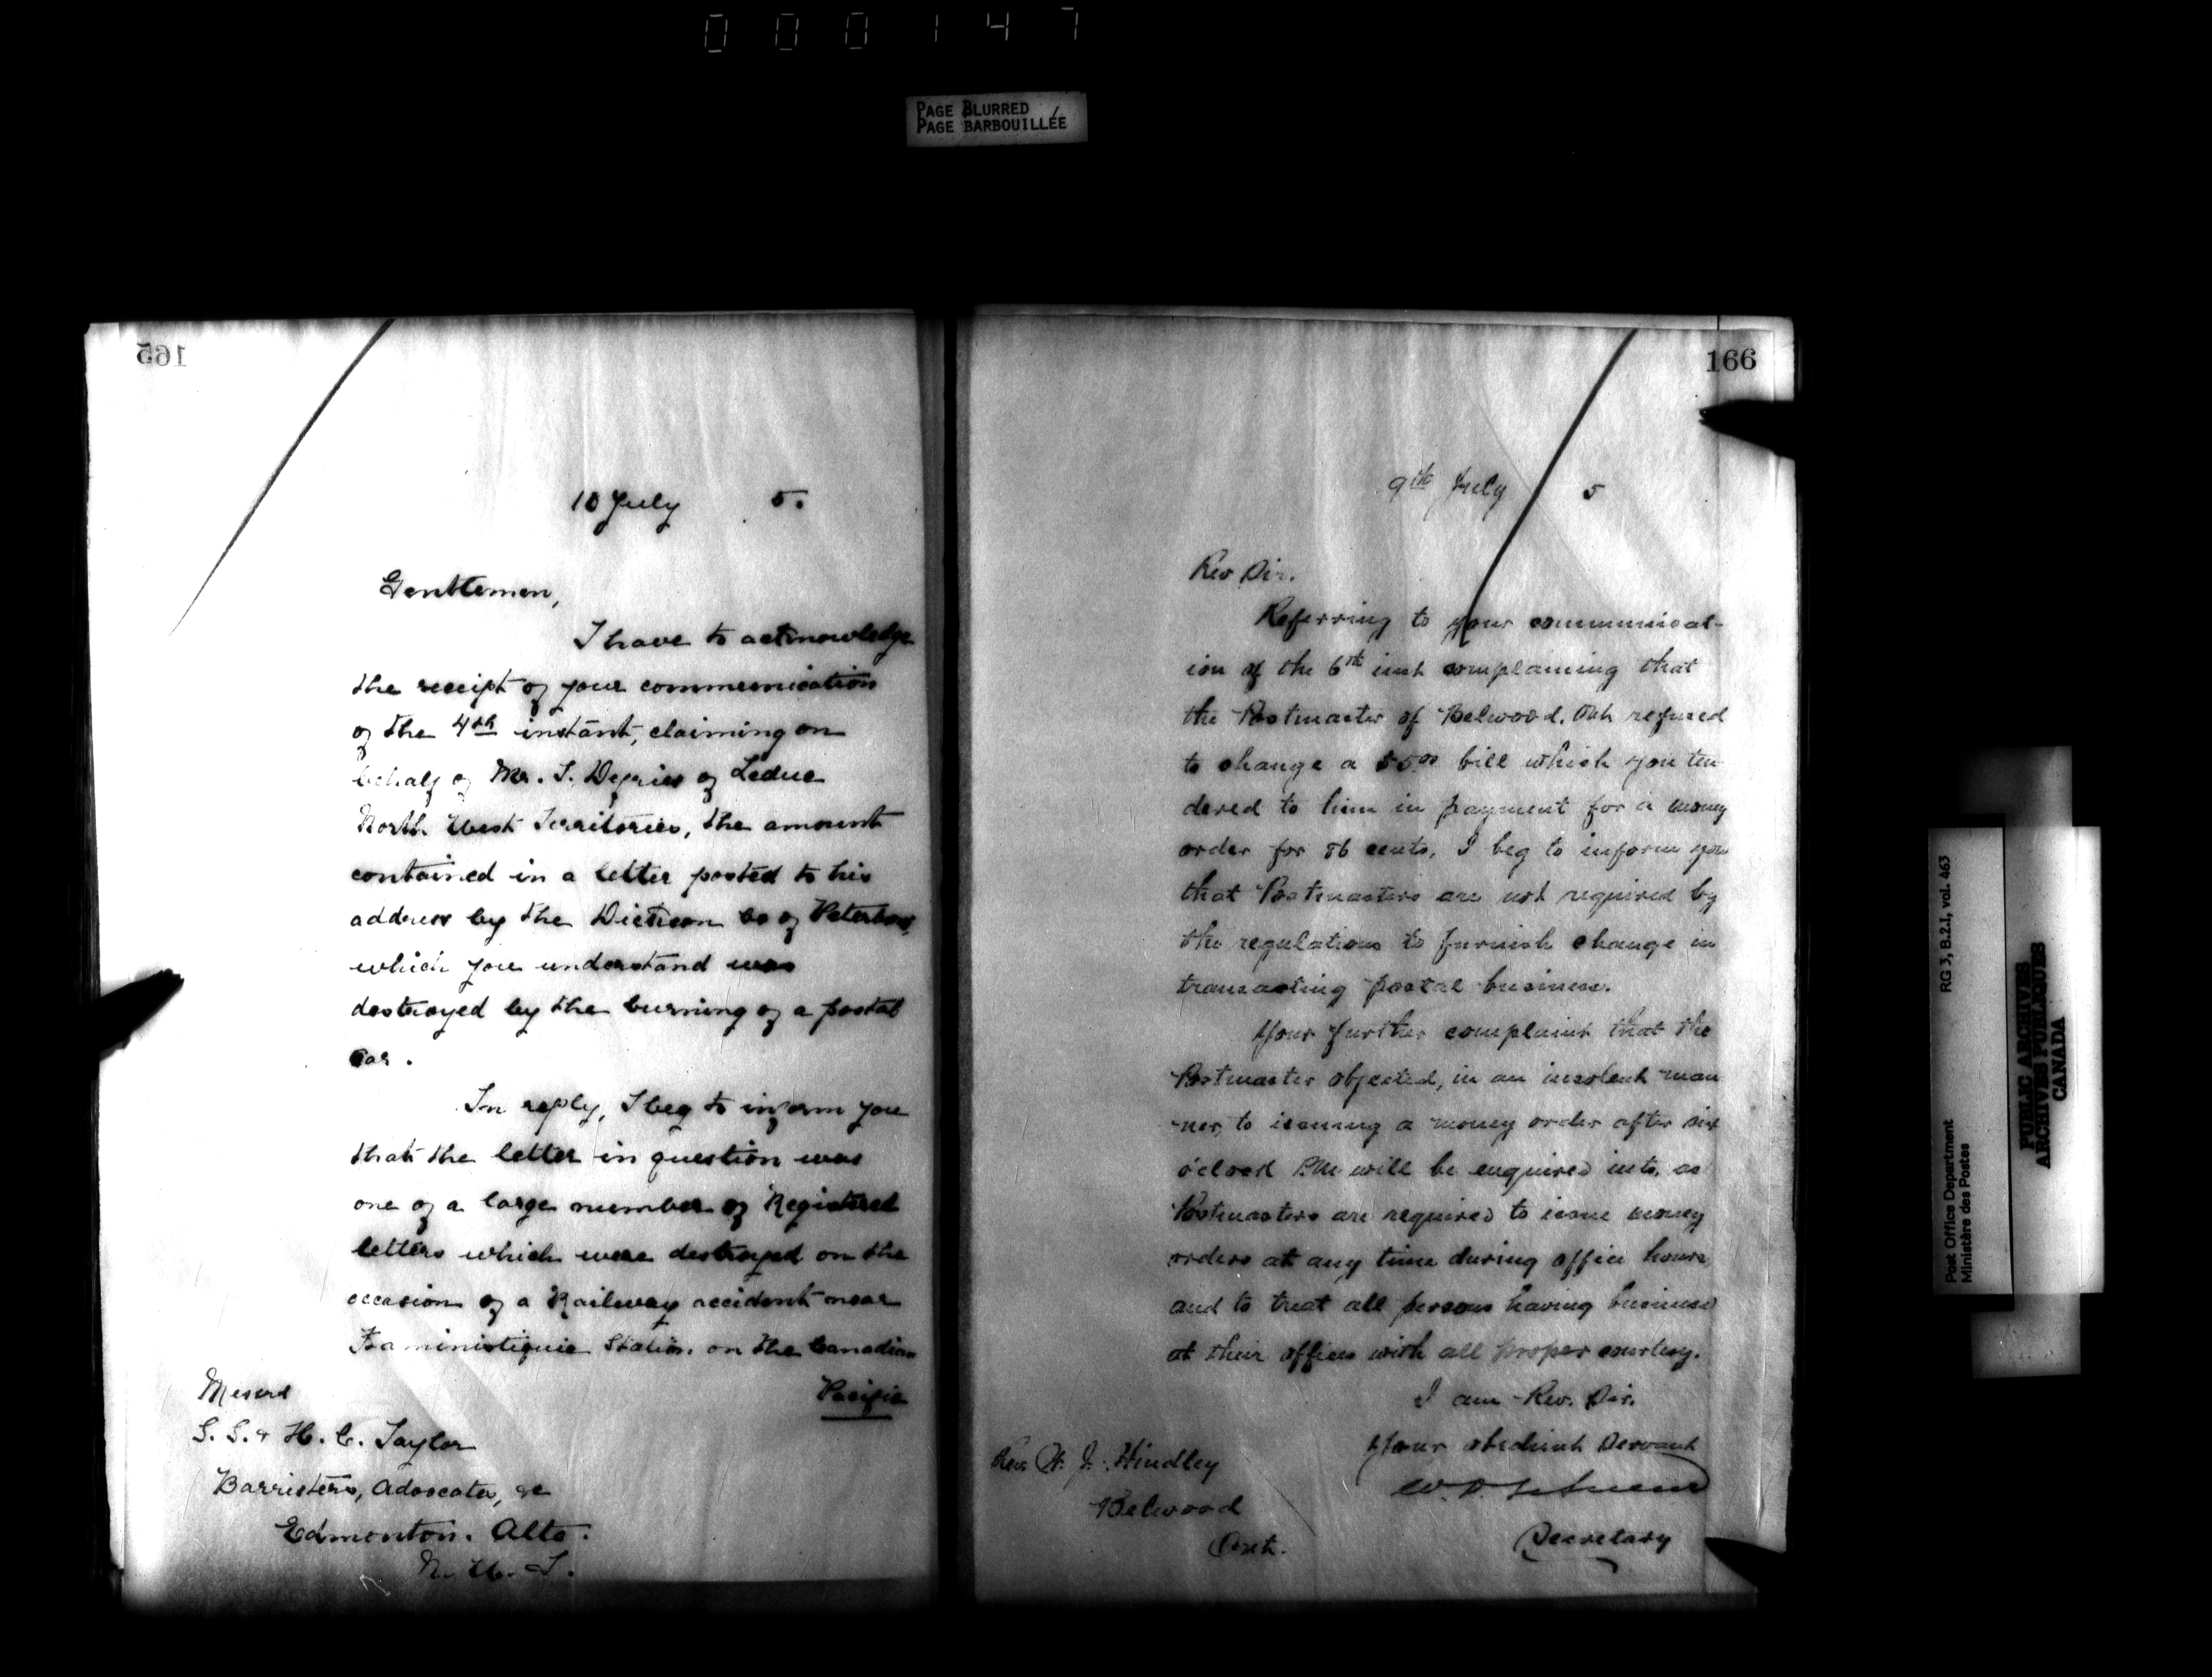 000147
PAGE BLURRED
PAGE BARBOUILLÉE
165
10 July 5.
Gentlemen,
I have to acknowledge
the receipt of your communication
of the 4th instant, claiming on
behalf of Mr. S. of Leduc
North West Territories, the amount
contained in a letter posted to his
address by the Dickson Co of Peterboro,
which you understand was
destroyed by the burning of a postal
car.
In reply, I beg to inform you
that the letter in question was
one of a large number of Registered
letters which were destroyed on the
occasion of a Railway accident near
Kaministiquia Station on the Canadian
Pacific
Messrs
S. S. & H. C. Taylor
Barristers, Advocates, &c
Edmonton. Alta.
N. W. T.
166
9th July 5
Rev Sir.
Referring to your communicat-
ion of the 6th inst complaining that
the Postmaster of Belwood, Ont refused
to change a $5.00 bill which you ten
dered to him in payment for a money
order for 86 cents, I beg to inform you
that Postmasters are not required by
the regulations to furnish change in
transacting postal business.
Your further complaint that the
Postmaster objected, in an insolent man
ner, to issuing a money order after six
o'clock P.M. will be enquired into, as
Postmasters are required to issue money
orders at any time during office hours
and to treat all persons having business
at their offices with all proper courtesy.
I am Rev. Sir.
Your obedient Servant
W. D.
Secretary
Rev. W. J. Hindley
Belwood
Ont.
RG 3, B.2.I, vol. 463
Post Office Department
Ministère des Postes
PUBLIC ARCHIVES
ARCHIVES PUBLIQUES
CANADA